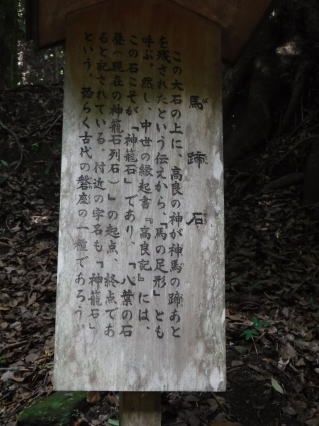 馬蹄石
この大石の上に、高良の神が神馬の蹄あと
を残されたという伝えから、「馬の足形」とも
呼ぶ。然し、中世の縁起書『高良記』には、
この石こそが「神籠石」であり、「八葉の石
畳（現在の神籠石列石）」の起点、終点であ
ると記されている。付近の字名も「神籠石」
という。恐らく古代の磐座の一種であろう。